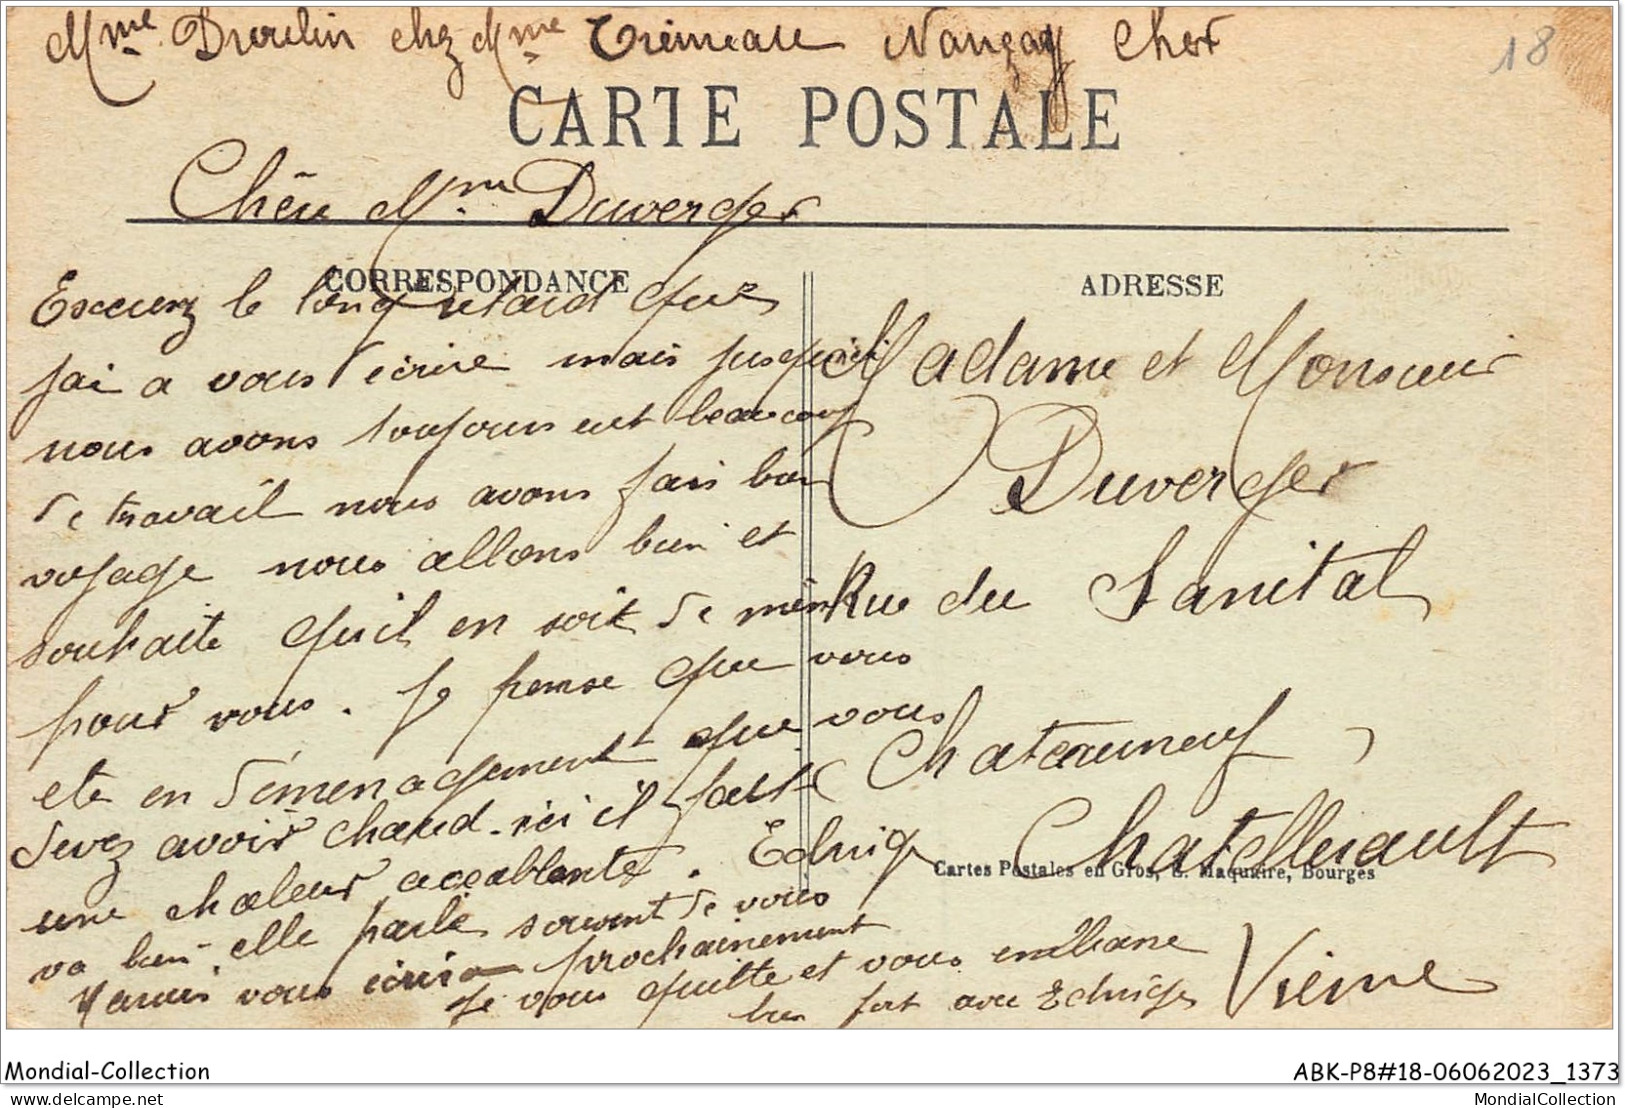 Mme Droulin chez Mme Trémeau Nançay Cher
18
CARTE POSTALE
Chère Mme Duverger
CORRESPONDANCE
Excusez le long retard que
jai a vous écrire mais jusqu'ici
nous avons toujours eut beaucoup
de travail nous avons fais bon
voyage nous allons bien et
souhaite qu'il en soit de même
pour vous. Je pense que vous
ete en déménagement que vous
devez avoir chaud. ici il fait
une chaleur accablante. Edwige
va bien elle parle souvent de vous
vous écrira prochainement
Je vous quitte et vous embrasse
bien fort avec Edwige
ADRESSE
Madame et Monsieur
Duverger
Rue du Sanital
Chateauneuf
Chatellerault
Vienne
Cartes Postales en Gros, E. Maquaire, Bourges
Mondial-Collection
ABK-P8#18-06062023_1373
delcampe.net
MondialCollection